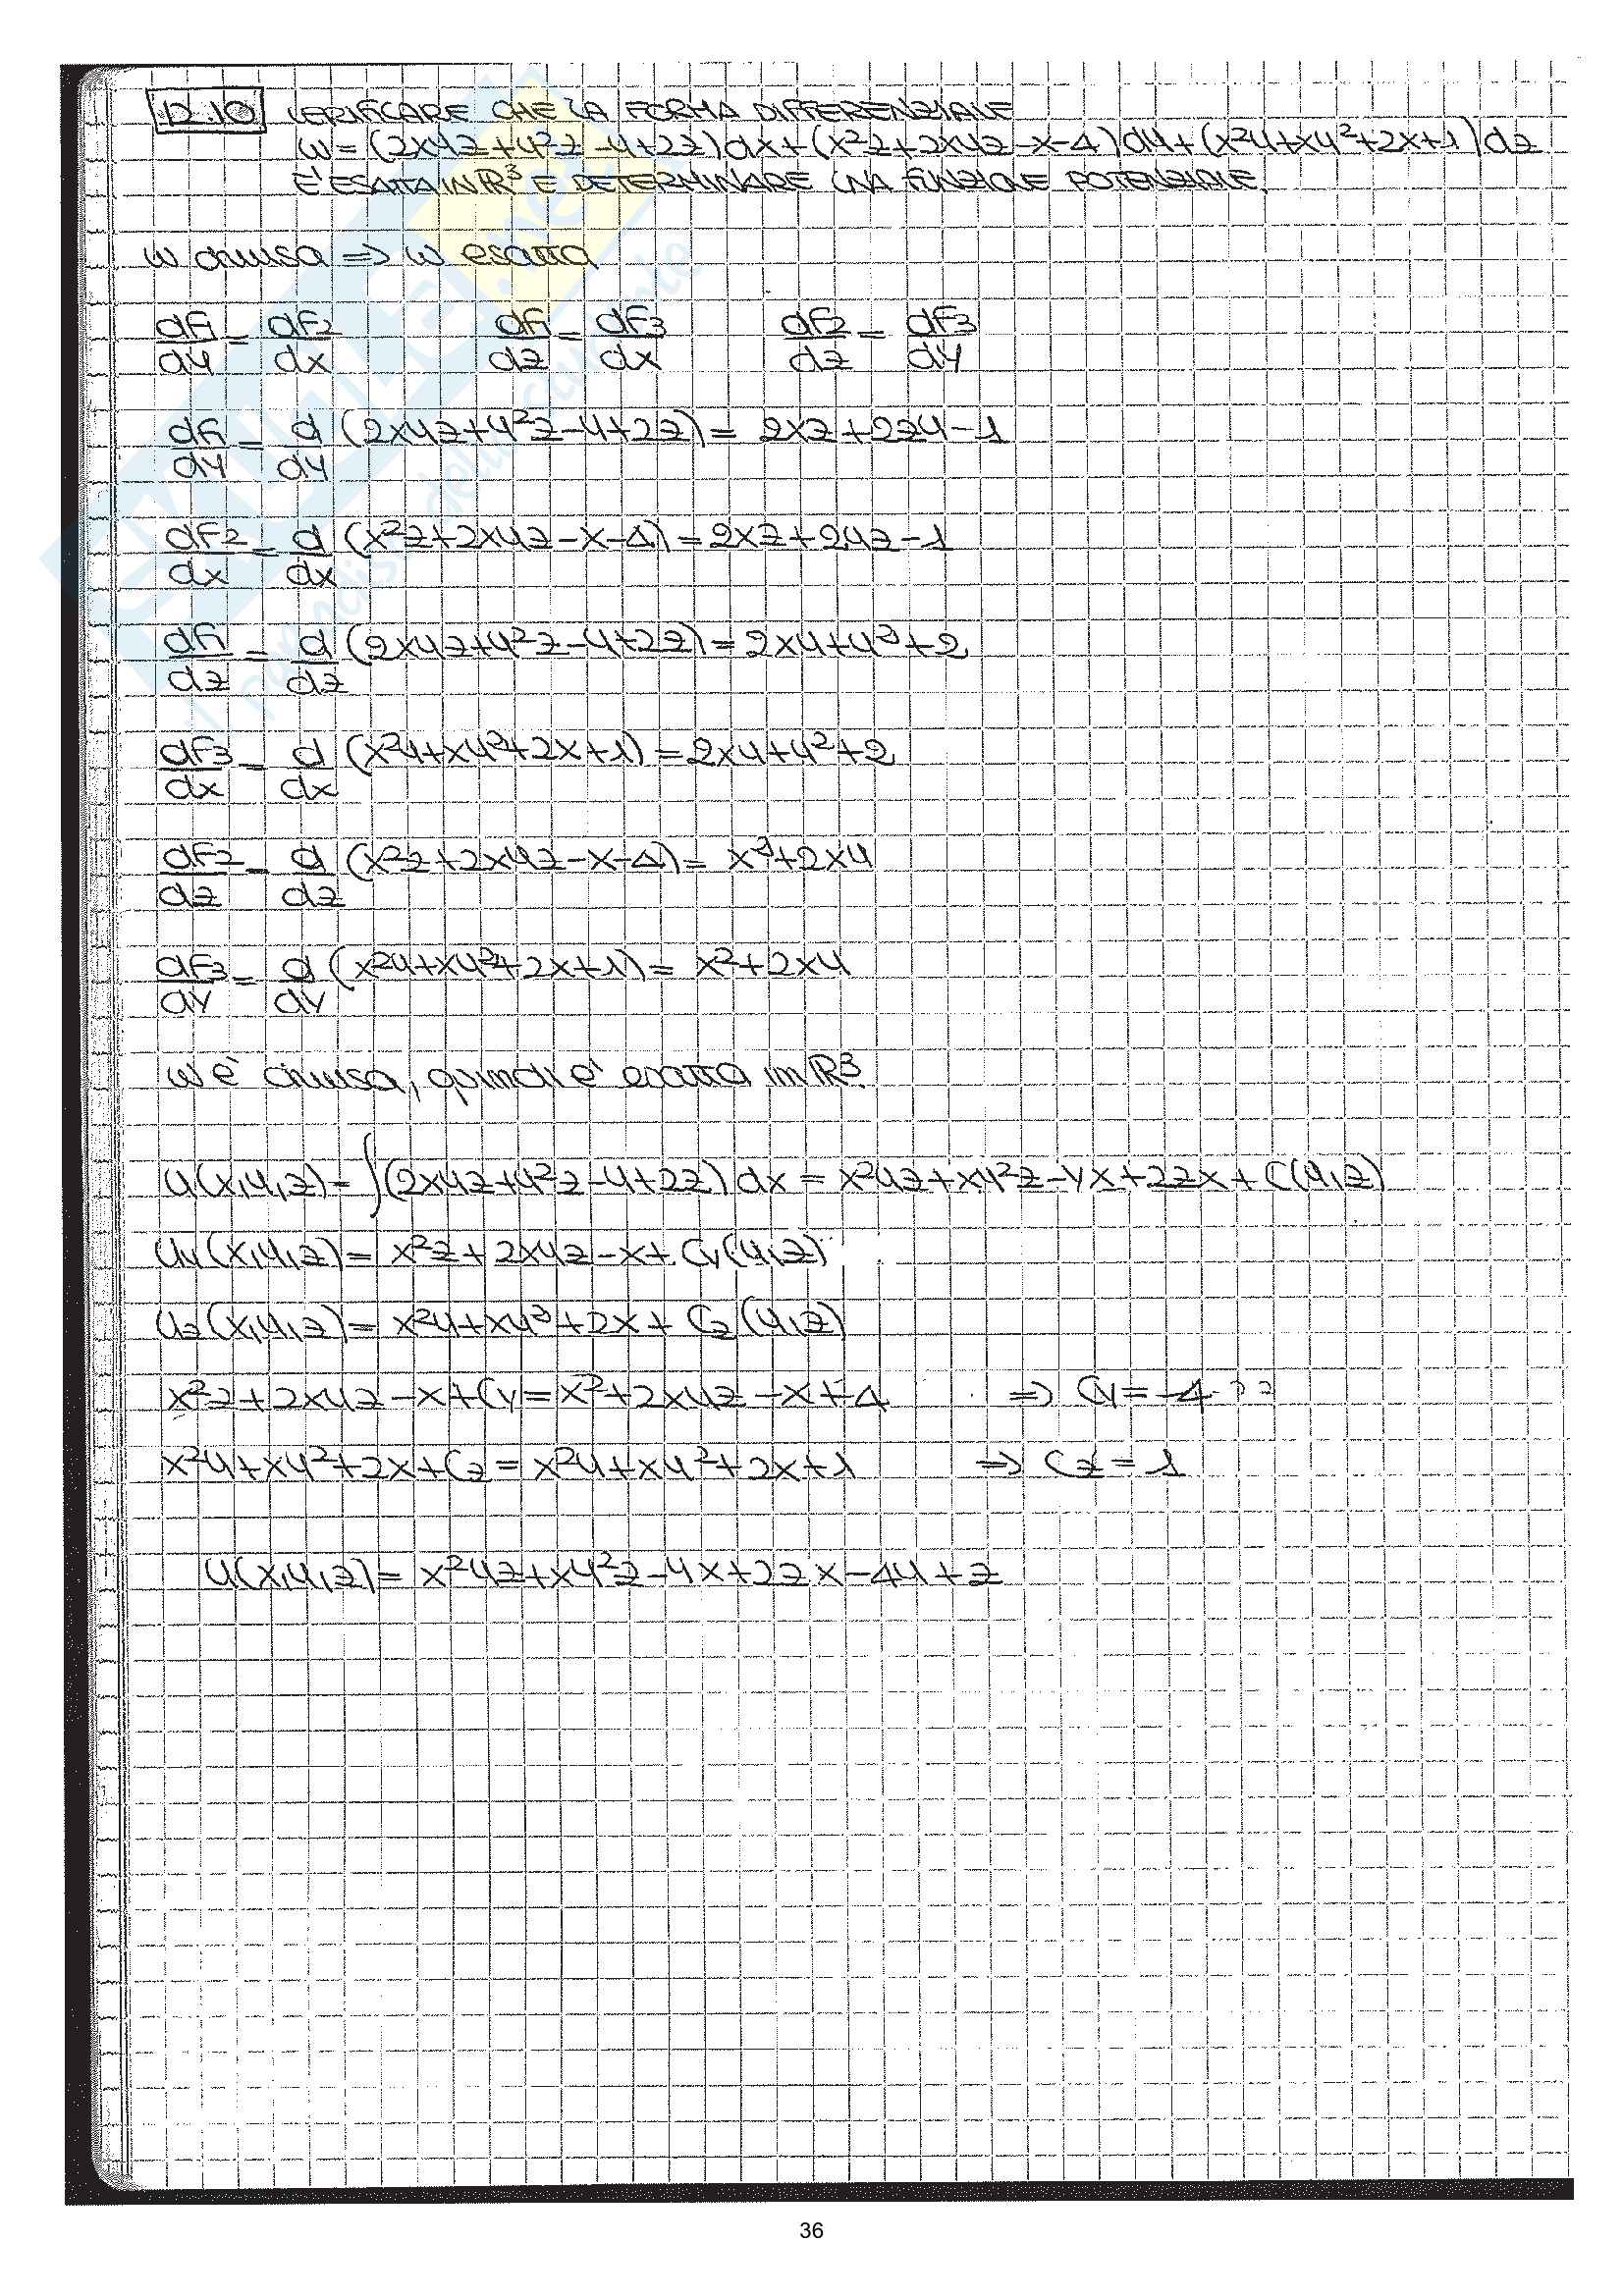 12.10 VERIFICARE CHE LA FORMA DIFFERENZIALE
ω = (2xyz+y²z-y+2z)dx+(x²z+2xyz-x-4)dy+(x²y+xy²+2x+1)dz
E' ESATTA IN R³ E DETERMINARE UNA FUNZIONE POTENZIALE.
ω chiusa => ω esatta
dF1/dy = dF2/dx   dF1/dz = dF3/dx   dF2/dz = dF3/dy
dF1/dy = d/dy (2xyz+y²z-y+2z) = 2xz+2zy-1
dF2/dx = d/dx (x²z+2xyz-x-4) = 2xz+2yz-1
dF1/dz = d/dz (2xyz+y²z-y+2z) = 2xy+y²+2
dF3/dx = d/dx (x²y+xy²+2x+1) = 2xy+y²+2
dF2/dz = d/dz (x²z+2xyz-x-4) = x²+2xy
dF3/dy = d/dy (x²y+xy²+2x+1) = x²+2xy
ω è chiusa, quindi è esatta in R³.
U(x,y,z) = ∫(2xyz+y²z-y+2z) dx = x²yz+xy²z-yx+2zx+C(y,z)
Uy(x,y,z) = x²z+2xyz-x+Cy(y,z)
Uz(x,y,z) = x²y+xy²+2x+Cz(y,z)
x²z+2xyz-x+Cy = x²+2xyz-x+4 => Cy = -4 ??
x²y+xy²+2x+Cz = x²y+xy²+2x+1 => Cz = 1
U(x,y,z) = x²yz+xy²z-yx+2zx-4y+z
36